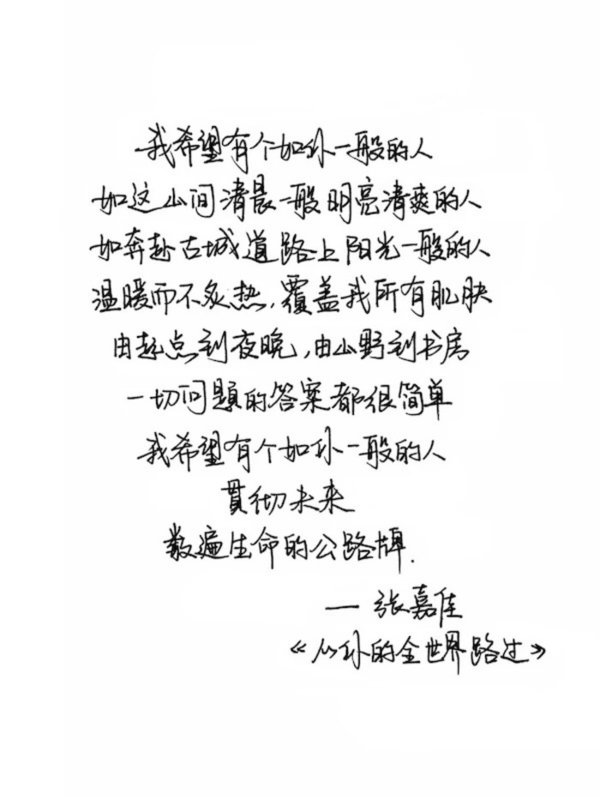 我希望有个如你一般的人
如这山间清晨一般明亮清爽的人
如奔赴古城道路上阳光一般的人
温暖而不炙热,覆盖我所有肌肤
由起点到夜晚,由山野到书房
一切问题的答案都很简单
我希望有个如你一般的人
贯彻未来
数遍生命的公路牌.
— 张嘉佳
《从你的全世界路过》